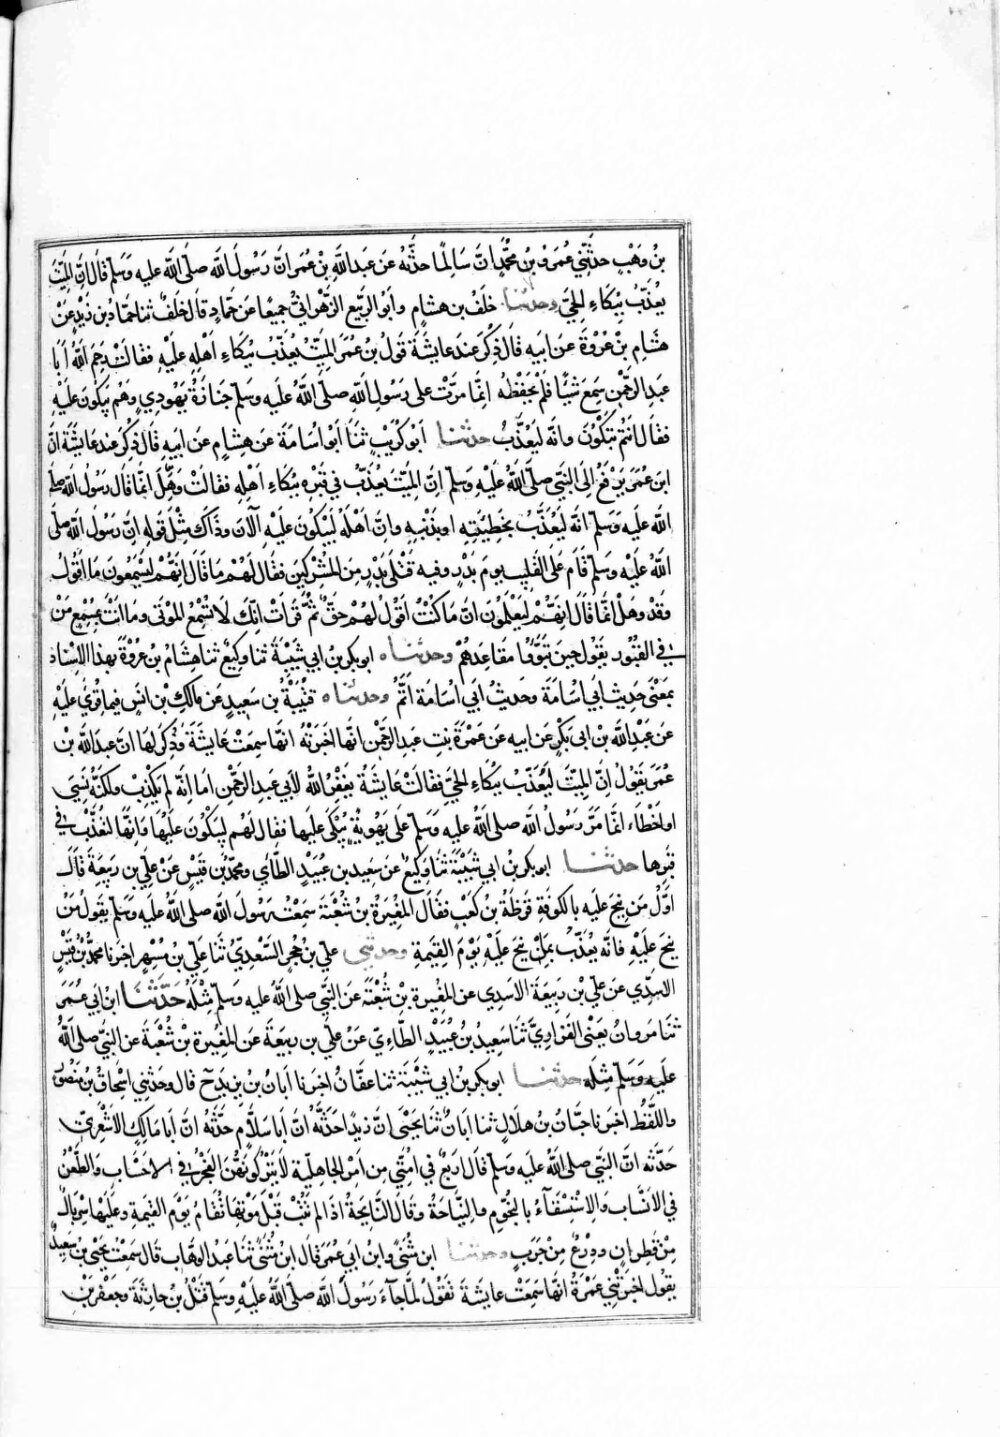 بن وَهْبٍ حدثني عُمَرُ بن محمدٍ انّ سَالِمًا حدّثهُ عن عبد اللَّهِ بن عُمَر انّ رَسُول اللَّه صلى اللَّه عليه وَسَلم قال انّ الميّتَ
يعُذّبُ بِبكاءِ الحيّ وحدثنا خلفُ بن هشامٍ وابو الرّبيع الزّهْرانيُّ جميعًا عن حمّادٍ قال خلفٌ ثنا حمّاد بن زيْدٍ عنْ
هشامِ بن عُرْوَةَ عن ابيه قال ذُكِرَ عند عايشةَ قولُ بن عُمَرَ الميّتُ يُعذّبُ ببكاءِ اهله عليْه فقالتْ رحم اللَّه أبا
عبد الرّحمٰن سمعَ شيئًا فلم يحفظْه انّما مرّتْ على رسُول اللَّهِ صلى اللَّهُ عليه وسلم جنازةُ يهوديٍ وهُم يبكون عليْه
فقال انتم تبكُون وانّه ليُعذّبُ حدثنا ابو كُريْبٍ ثنَا ابو اسَامَةَ عن هِشامٍ عن ابيه قال ذُكِرَ عند عايشَةَ انَّ
ابن عُمَرَ يَرْفعُ الى النبّي صلى اللَّهُ عليْه وسَلم انّ الميّتَ يُعذّبُ في قبْره ببكاءِ اهْلِهِ فقالتْ وَهِلَ انّما قال رسُول اللَّه صلى
اللَّه عليه وَسَلم انّه ليُعَذّبُ بخطيئَتِه او بذنْبِهِ وانّ اهْلَهُ ليَبْكون عليْهِ الآن وذاكَ مثْلُ قولِهِ انّ رَسُولَ اللَّه صلّى
اللَّهُ عليْه وسلم قام على القَليبِ يومَ بَدْرٍ وفيه قتْلَى بَدْرٍ من المُشْركين فقال لهُمْ ما قال انّهُمْ ليَسْمعُون ما اقُولُ
وقدْ وهلَ انّما قال انّهُمْ ليَعْلمُون انّ ما كنتُ اقول لهمْ حقٌ ثُمّ قرأتْ انّك لا تُسْمعُ الموْتى وما انتَ بمُسْمِعٍ مَنْ
في القبُور يقُول حين تبوّؤا مقاعدهُمْ وحدثناه ابو بكر بن ابي شيْبَةَ ثنا وكيعٌ ثنا هشامُ بن عُرْوَةَ بهذا الاسْناد
بمعْنى حديث ابي اسَامَة وحديثُ ابي اُسَامَة اتَمُّ وحدثناه قتيْبَةُ بن سَعيدٍ عن مالكِ بن انَسٍ فيما قرئ عليْهِ
عن عَبْد اللَّه بن ابى بَكْرٍ عن ابيه عن عَمْرَة بنتِ عبد الرّحمٰن انّها اخبرتْهُ انّها سمِعَتْ عايشَةَ وذُكِرَ لها انّ عبد اللَّه بْن
عُمَرَ يَقولُ انّ الميّتَ ليُعَذّبُ ببُكاءِ الحيّ فقالتْ عايشَةُ يغفرُ اللَّهُ لأبي عبد الرّحمٰنِ امَا انّه لم يكذبْ ولكنّهُ نَسِيَ
او اخْطاء انّما مَرّ رَسُولُ اللَّه صلى اللَّه عليه وسلم على يَهُوديّةٍ يُبْكى عليها فقال لهُم ليبكونَ عليْها وانّها لتُعَذّبُ في
قبرها حدثنا ابو بكر بن ابي شَيبَةَ ثنا وكيْعٌ عن سَعِيدِ بن عُبَيْدٍ الطّاي ومحمّد بن قيْسٍ عنْ علي بن ربيعَةَ قال
اوّلُ مَن نيحَ عليه بالكُوفةِ قرظَةُ بن كعْبٍ فقال المغِيرَة بن شعْبَةَ سمِعْتُ رسُولَ اللَّه صلى اللَّه عليه وسلم يقول مَنْ
نيحَ عليْهِ فانّه يُعَذّبُ بما نيحَ عليْهِ يوْمَ القِيمةِ وحدثني علي بن حُجْرٍ السّعْديُّ ثنا علي بن مُسْهرٍ اخبرنا محمّدُ بن قيْسٍ
الاسدي عن علي بن ربيعَة الاسدي عن المغيرة بن شُعْبَة عن النبي صلى اللَّه عليه وسلم مثلهُ حَدّثنا ابن ابي عُمَرَ
ثنا مَروانُ يعْنى الفزاريَّ ثنا سَعيدُ بن عُبَيْدٍ الطّاءيّ عن علي بن ربيعَةَ عن المغيرة بن شُعْبَة عن النبي صلى اللَّهُ
عليه وسَلم مثلهُ حدثنا ابو بكر بن ابي شَيْبَةَ ثنا عفّان اخبرنا ابان بن يزيدَ ح قال وحدثني اسْحاق بن منصُور
واللّفظُ اخبرنا حبّان بن هلالٍ ثنا ابانٌ ثنا يحيى انّ زيدًا حدّثهُ انّ ابا سلّامٍ حدّثهُ انّ ابا مالك الأشْعريّ
حدّثه انّ النبي صلى اللَّه عليه وسلم قال اربَعٌ في امّتي من امر الجاهليّة لا يترُكونَهُنّ الفخْرُ في الاحْسَاب والطّعْنُ
في الانْسَاب والاسْتِسْقَاءُ بالنّجُوم والنّياحَةُ وقال النّايحَةُ اذا لم تتُبْ قبْلَ موْتِها تُقامُ يوْمَ القيمة وعليْها سِرْبالٌ
مِنْ قطِرانٍ ودِرْعٌ مِنْ جَربٍ وحدثنا ابن مُثنّى وابن ابي عمَرَ قال ابن مُثنّى ثنا عبد الوهّاب قال سَمعتُ يحيى بن سَعِيدٍ
يقول اخبرتْني عَمْرَةُ انّها سمعَتْ عايشَةَ تقُولُ لمّا جاءَ رسُولَ اللَّه صلى اللَّهُ عليْهِ وسَلم قتْلُ بن حارثَةَ وجعْفر بْنِ